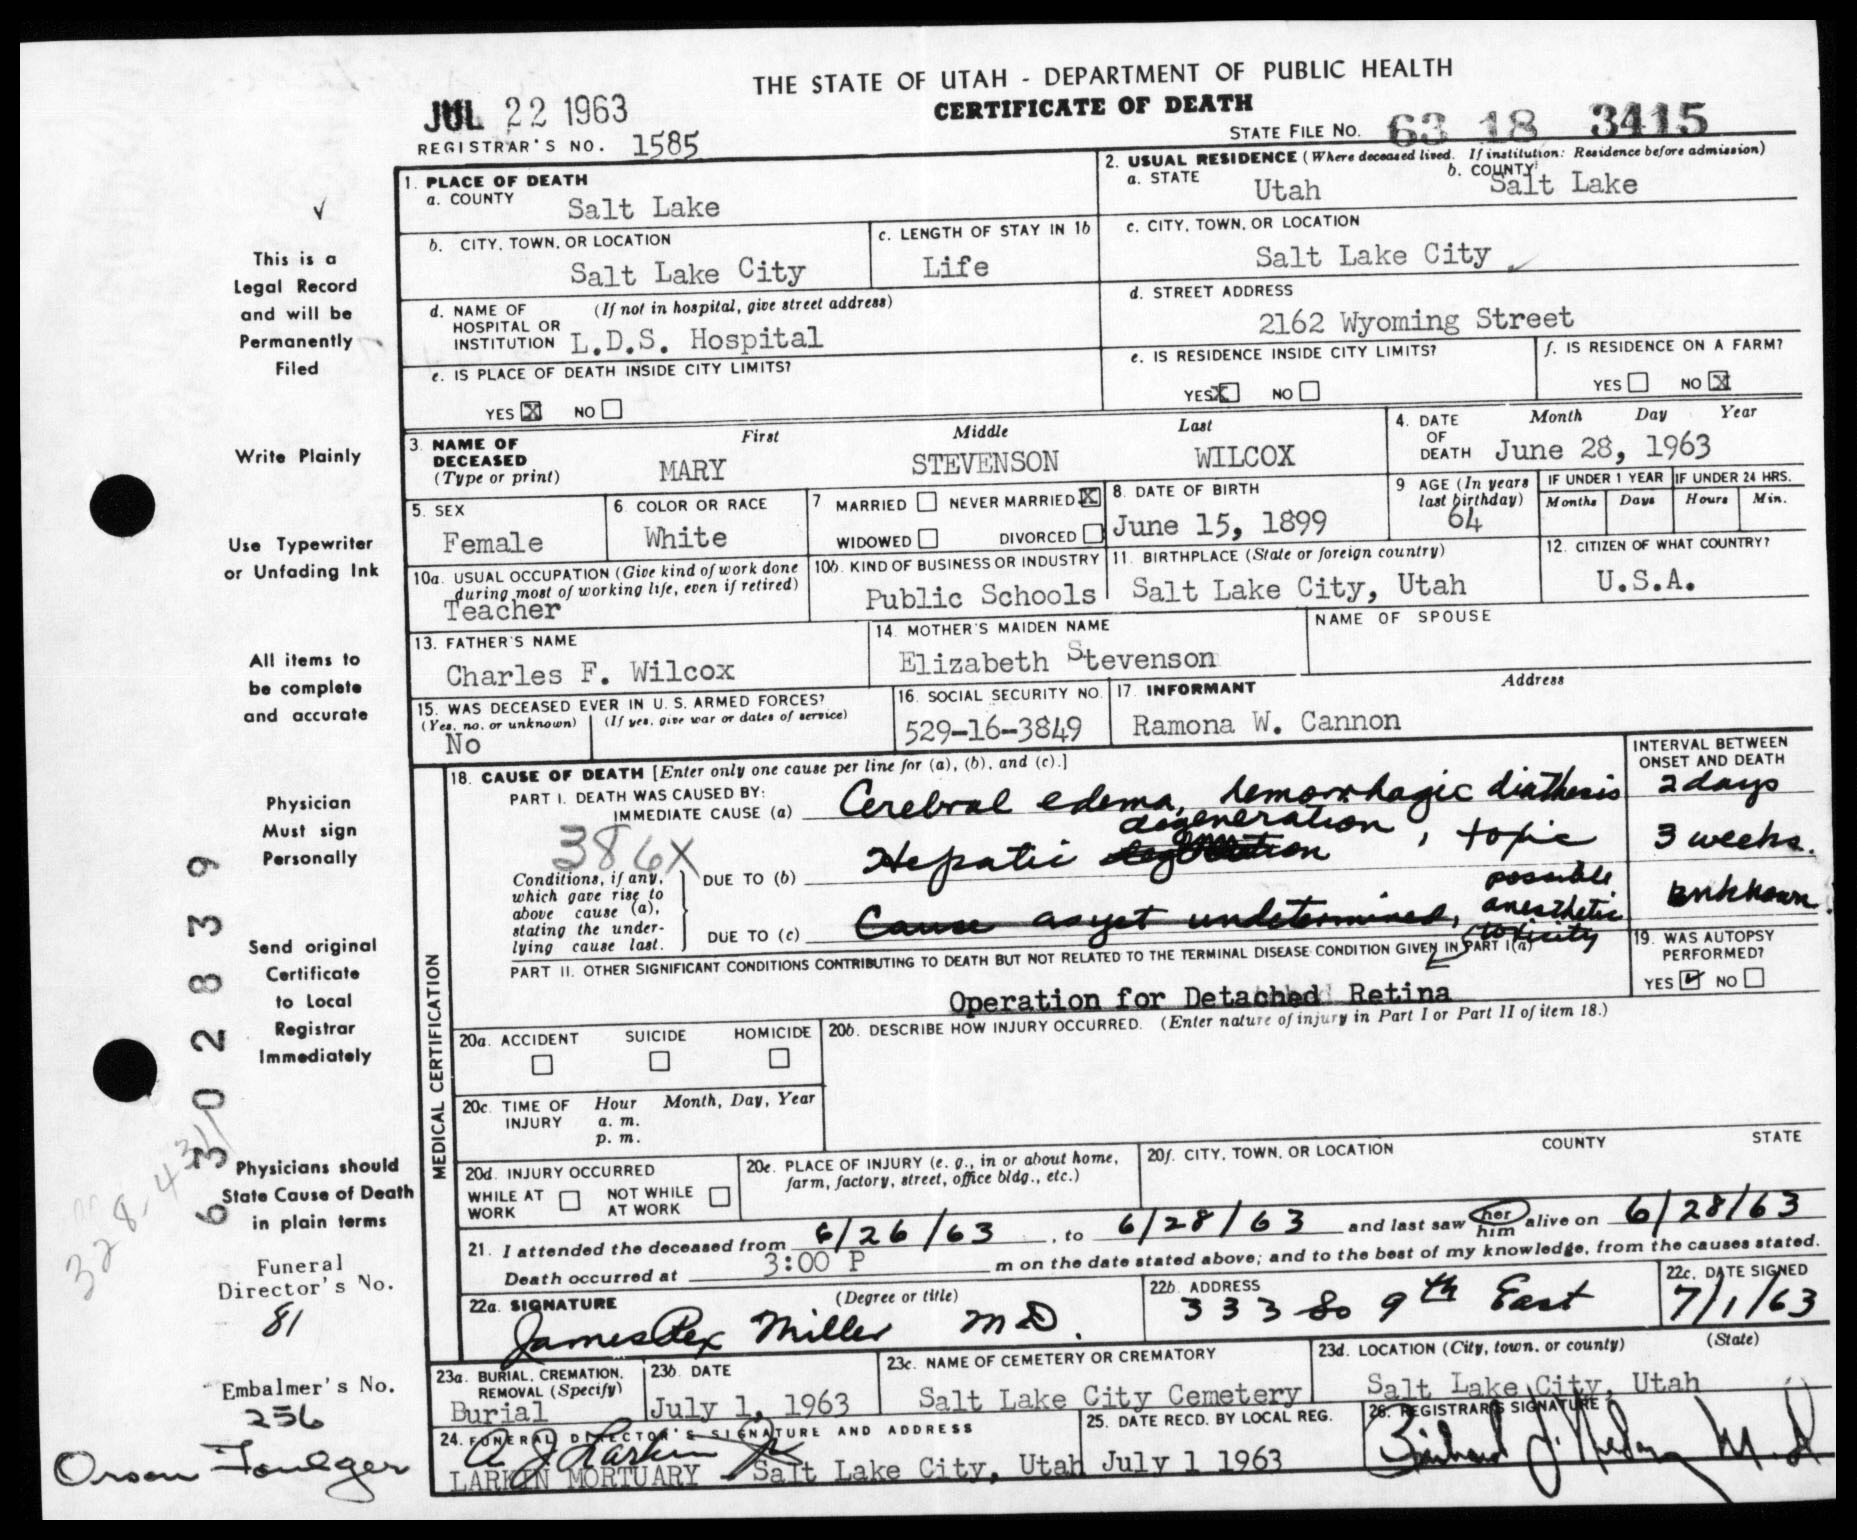 THE STATE OF UTAH - DEPARTMENT OF PUBLIC HEALTH
CERTIFICATE OF DEATH
JUL 22 1963
REGISTRAR'S NO. 1585
STATE FILE NO. 63 18 3415
1. PLACE OF DEATH
a. COUNTY Salt Lake
2. USUAL RESIDENCE (Where deceased lived. If institution: Residence before admission)
a. STATE Utah b. COUNTY Salt Lake
b. CITY, TOWN, OR LOCATION Salt Lake City
c. LENGTH OF STAY IN 1b Life
c. CITY, TOWN, OR LOCATION Salt Lake City
d. NAME OF HOSPITAL OR INSTITUTION (If not in hospital, give street address) L.D.S. Hospital
d. STREET ADDRESS 2162 Wyoming Street
e. IS PLACE OF DEATH INSIDE CITY LIMITS?
YES X NO
e. IS RESIDENCE INSIDE CITY LIMITS?
YES X NO
f. IS RESIDENCE ON A FARM?
YES NO X
3. NAME OF DECEASED (Type or print)
First Middle Last
MARY STEVENSON WILCOX
4. DATE OF DEATH Month Day Year
June 28, 1963
5. SEX Female
6. COLOR OR RACE White
7 MARRIED NEVER MARRIED X
WIDOWED DIVORCED
8. DATE OF BIRTH June 15, 1899
9 AGE (In years last birthday) 64
IF UNDER 1 YEAR Months Days
IF UNDER 24 HRS. Hours Min.
10a. USUAL OCCUPATION (Give kind of work done during most of working life, even if retired)
Teacher
10b. KIND OF BUSINESS OR INDUSTRY
Public Schools
11. BIRTHPLACE (State or foreign country)
Salt Lake City, Utah
12. CITIZEN OF WHAT COUNTRY?
U.S.A.
13. FATHER'S NAME
Charles F. Wilcox
14. MOTHER'S MAIDEN NAME
Elizabeth Stevenson
NAME OF SPOUSE
15. WAS DECEASED EVER IN U. S. ARMED FORCES?
(Yes, no, or unknown) (If yes, give war or dates of service)
No
16. SOCIAL SECURITY NO.
529-16-3849
17. INFORMANT Address
Ramona W. Cannon
MEDICAL CERTIFICATION
18. CAUSE OF DEATH [Enter only one cause per line for (a), (b), and (c).]
INTERVAL BETWEEN ONSET AND DEATH
PART I. DEATH WAS CAUSED BY:
IMMEDIATE CAUSE (a) Cerebral edema, hemorrhagic diathesis 2 days
386X
Conditions, if any, which gave rise to above cause (a), stating the underlying cause last.
degeneration
DUE TO (b) Hepatic , toxic 3 weeks.
DUE TO (c) Cause as yet undetermined, possible anesthetic toxicity unknown.
PART II. OTHER SIGNIFICANT CONDITIONS CONTRIBUTING TO DEATH BUT NOT RELATED TO THE TERMINAL DISEASE CONDITION GIVEN IN PART I(a)
Operation for Detached Retina
19. WAS AUTOPSY PERFORMED?
YES ✓ NO
20a. ACCIDENT SUICIDE HOMICIDE
20b. DESCRIBE HOW INJURY OCCURRED. (Enter nature of injury in Part I or Part II of item 18.)
20c. TIME OF INJURY Hour Month, Day, Year
a. m.
p. m.
20d. INJURY OCCURRED
WHILE AT WORK NOT WHILE AT WORK
20e. PLACE OF INJURY (e. g., in or about home, farm, factory, street, office bldg., etc.)
20f. CITY, TOWN, OR LOCATION COUNTY STATE
21. I attended the deceased from 6/26/63, to 6/28/63 and last saw her him alive on 6/28/63
Death occurred at 3:00 P m on the date stated above; and to the best of my knowledge, from the causes stated.
22a. SIGNATURE (Degree or title)
James Rex Miller MD.
22b. ADDRESS
333 So 9th East
22c. DATE SIGNED
7/1/63
23a. BURIAL, CREMATION, REMOVAL (Specify)
Burial
23b. DATE
July 1, 1963
23c. NAME OF CEMETERY OR CREMATORY
Salt Lake City Cemetery
23d. LOCATION (City, town, or county) (State)
Salt Lake City, Utah
24. FUNERAL DIRECTOR'S SIGNATURE AND ADDRESS
A J Larkin Jr
LARKIN MORTUARY Salt Lake City, Utah
25. DATE RECD. BY LOCAL REG.
July 1 1963
26. REGISTRAR'S SIGNATURE
M.D.
This is a
Legal Record
and will be
Permanently
Filed
Write Plainly
Use Typewriter
or Unfading Ink
All items to
be complete
and accurate
Physician
Must sign
Personally
Send original
Certificate
to Local
Registrar
Immediately
Physicians should
State Cause of Death
in plain terms
63028339
Funeral
Director's No.
81
Embalmer's No.
256
Orson Foulger